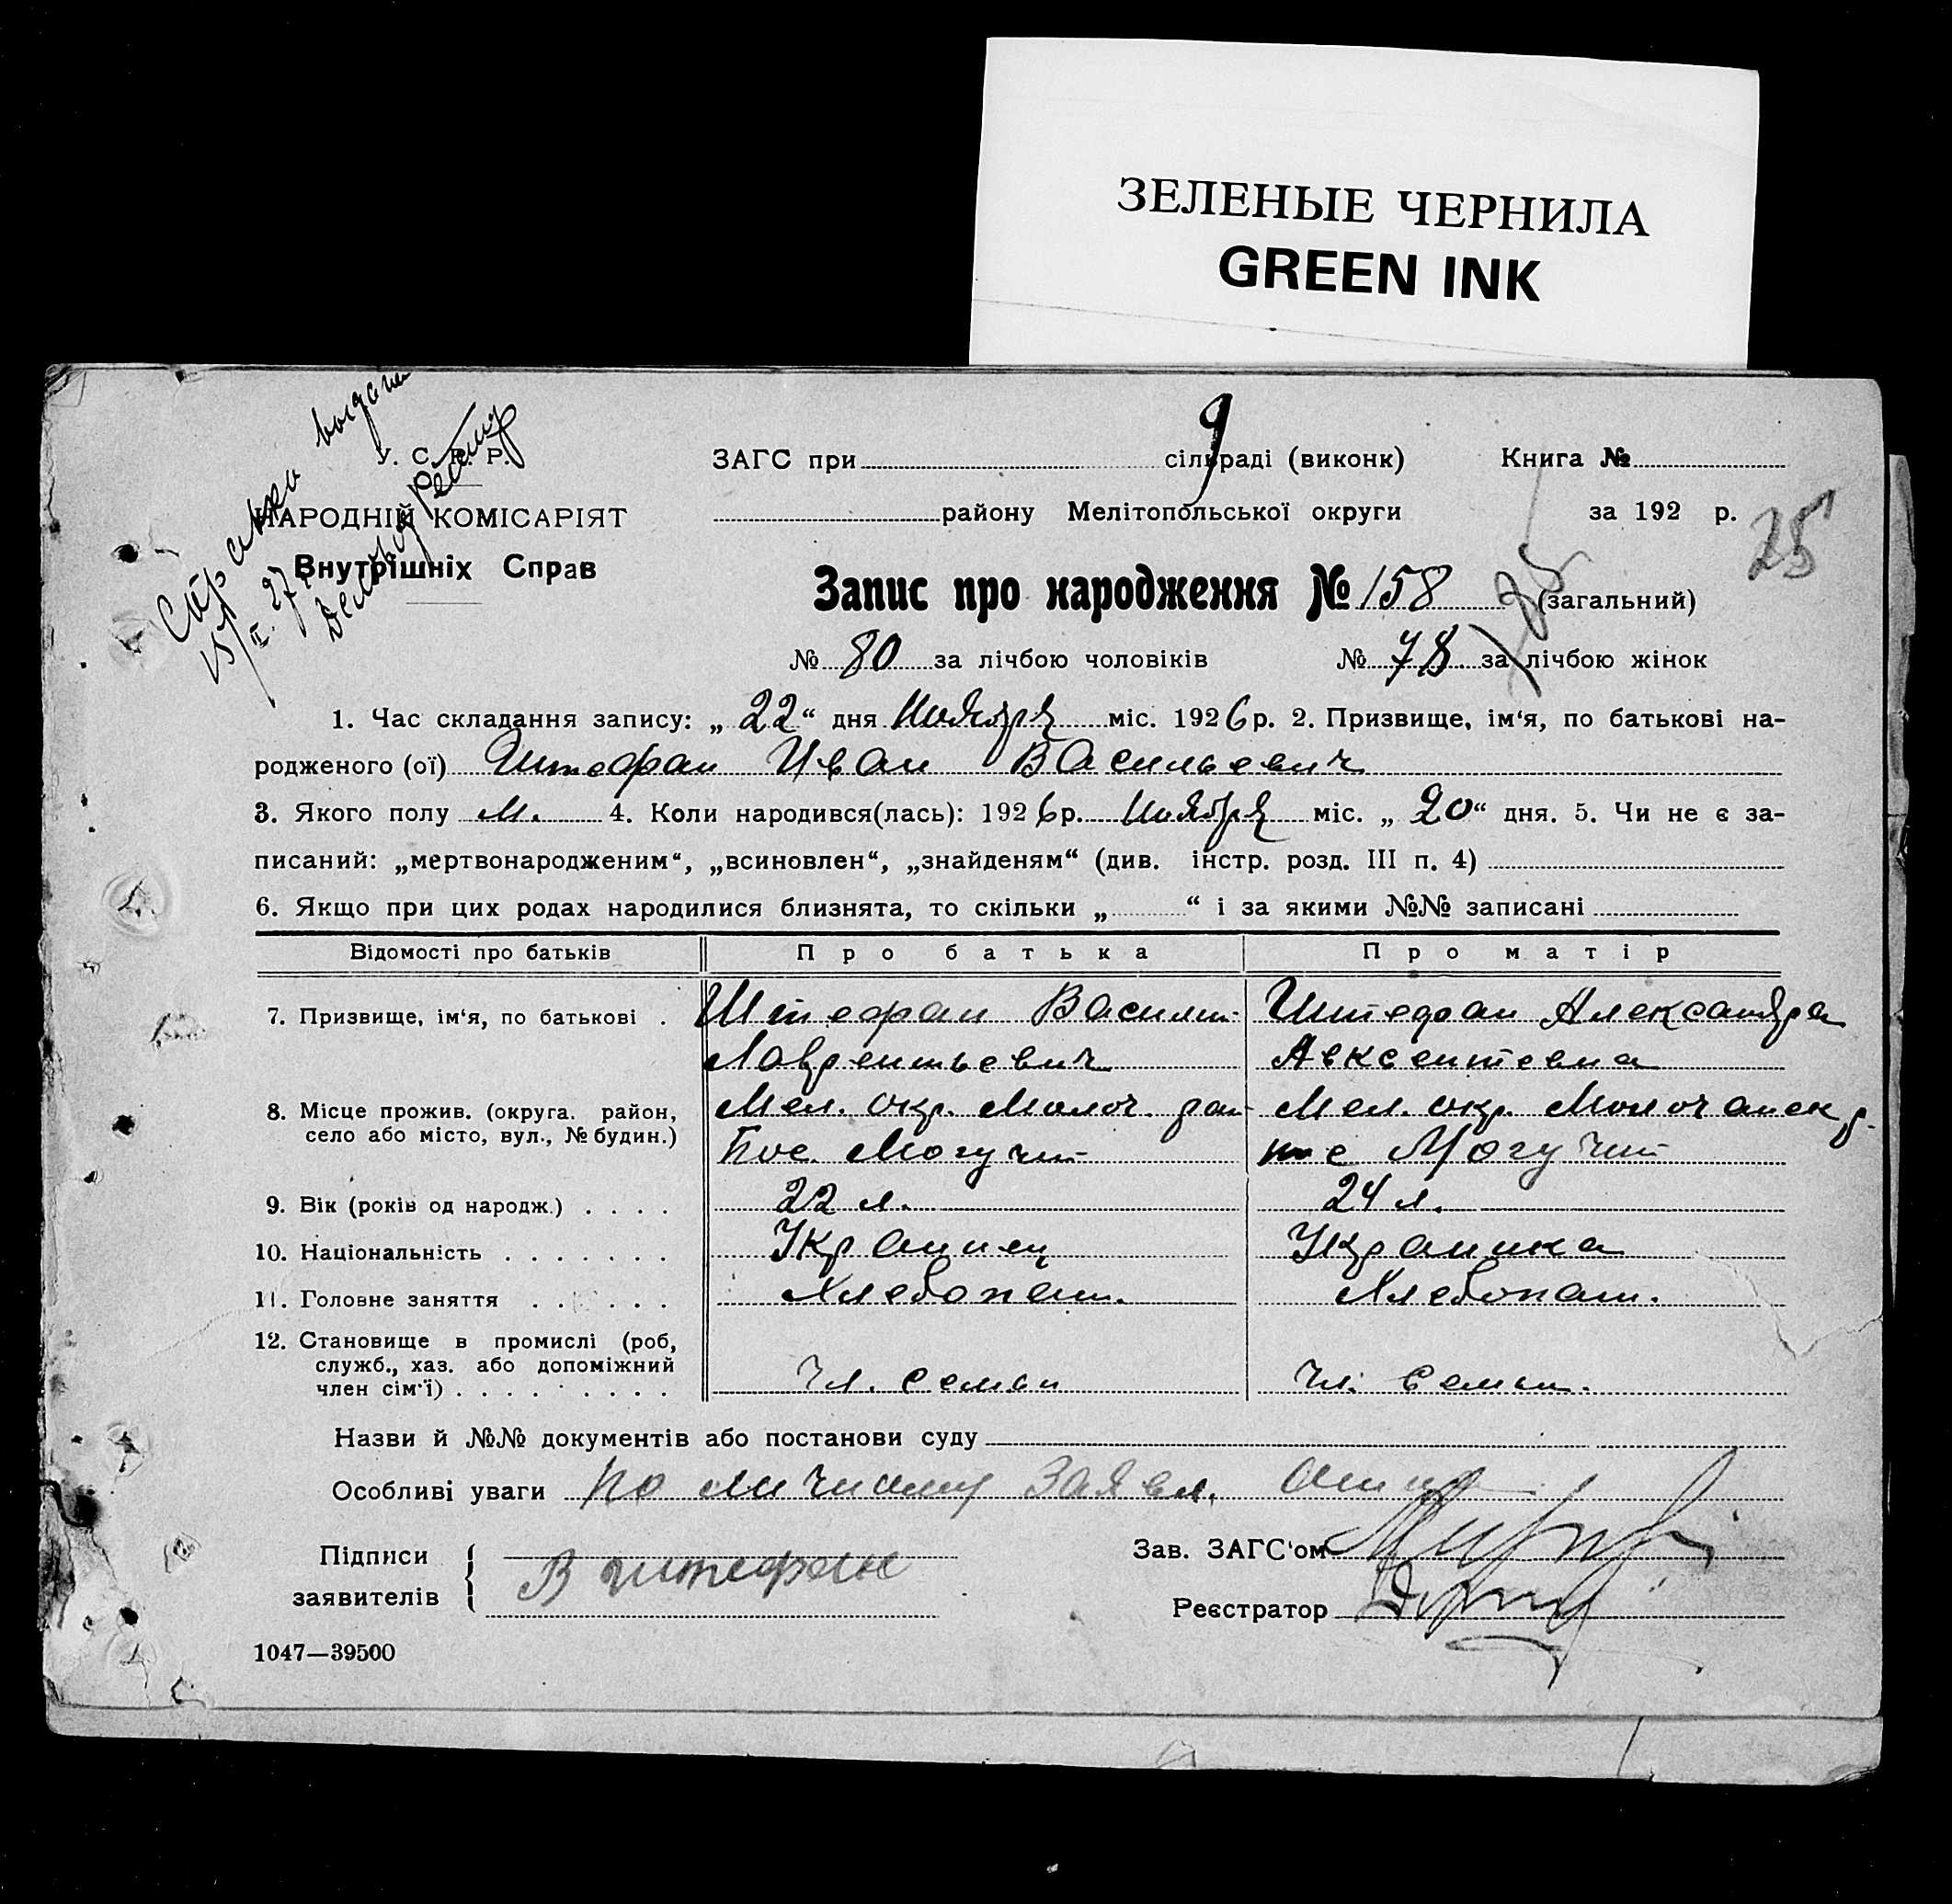 ЗЕЛЕНЫЕ ЧЕРНИЛА
GREEN INK
9
У. С. Р. Р.
НАРОДНІЙ КОМІСАРІЯТ
Внутрішніх Справ
Справка выдана
15/II. 27
ЗАГС при сільраді (виконк) Книга №
району Мелітопольської округи за 192 р.
25
Запис про народження № 158 (загальний)
№ 80 за лічбою чоловіків № 78 за лічбою жінок
1. Час складання запису: „ 22 “ дня Ноября міс. 1926 р. 2. Призвище, ім‘я, по батькові на-
родженого (ої) Штефан Иван Васильевич
3. Якого полу М. 4. Коли народився(лась): 1926 р. Ноября міс. „ 20 “ дня. 5. Чи не є за-
писаний: „мертвонародженим“, „всиновлен“, „знайденям“ (див. інстр. розд. III п. 4)
6. Якщо при цих родах народилися близнята, то скільки „ “ і за якими №№ записані
Відомості про батьків Про батька Про матір
7. Призвище, ім‘я, по батькові . Штефан Васили- Штефан Александра
Лаврентьевич Авксентевна
8. Місце прожив. (округа. район, Мел. окр. Молоч. рай- Мел. окр. Молочанск р.
село або місто, вул., № будин.) Пос. Могучий Могучий
9. Вік (років од народж.) . . . . 22 л. 24 л.
10. Національність . . . . . . . Украинец Украинка
11. Головне заняття . . . . . . Хлебопаш. Хлебопаш.
12. Становище в промислі (роб,
служб., хаз. або допоміжний
член сім‘ї) . . . . . . . . . Чл. семьи Чл. семьи.
Назви й №№ документів або постанови суду
Особливі уваги По личному заявл. отца
Підписи
заявителів В Штефан
Зав. ЗАГС‘ом
Реєстратор
1047—39500